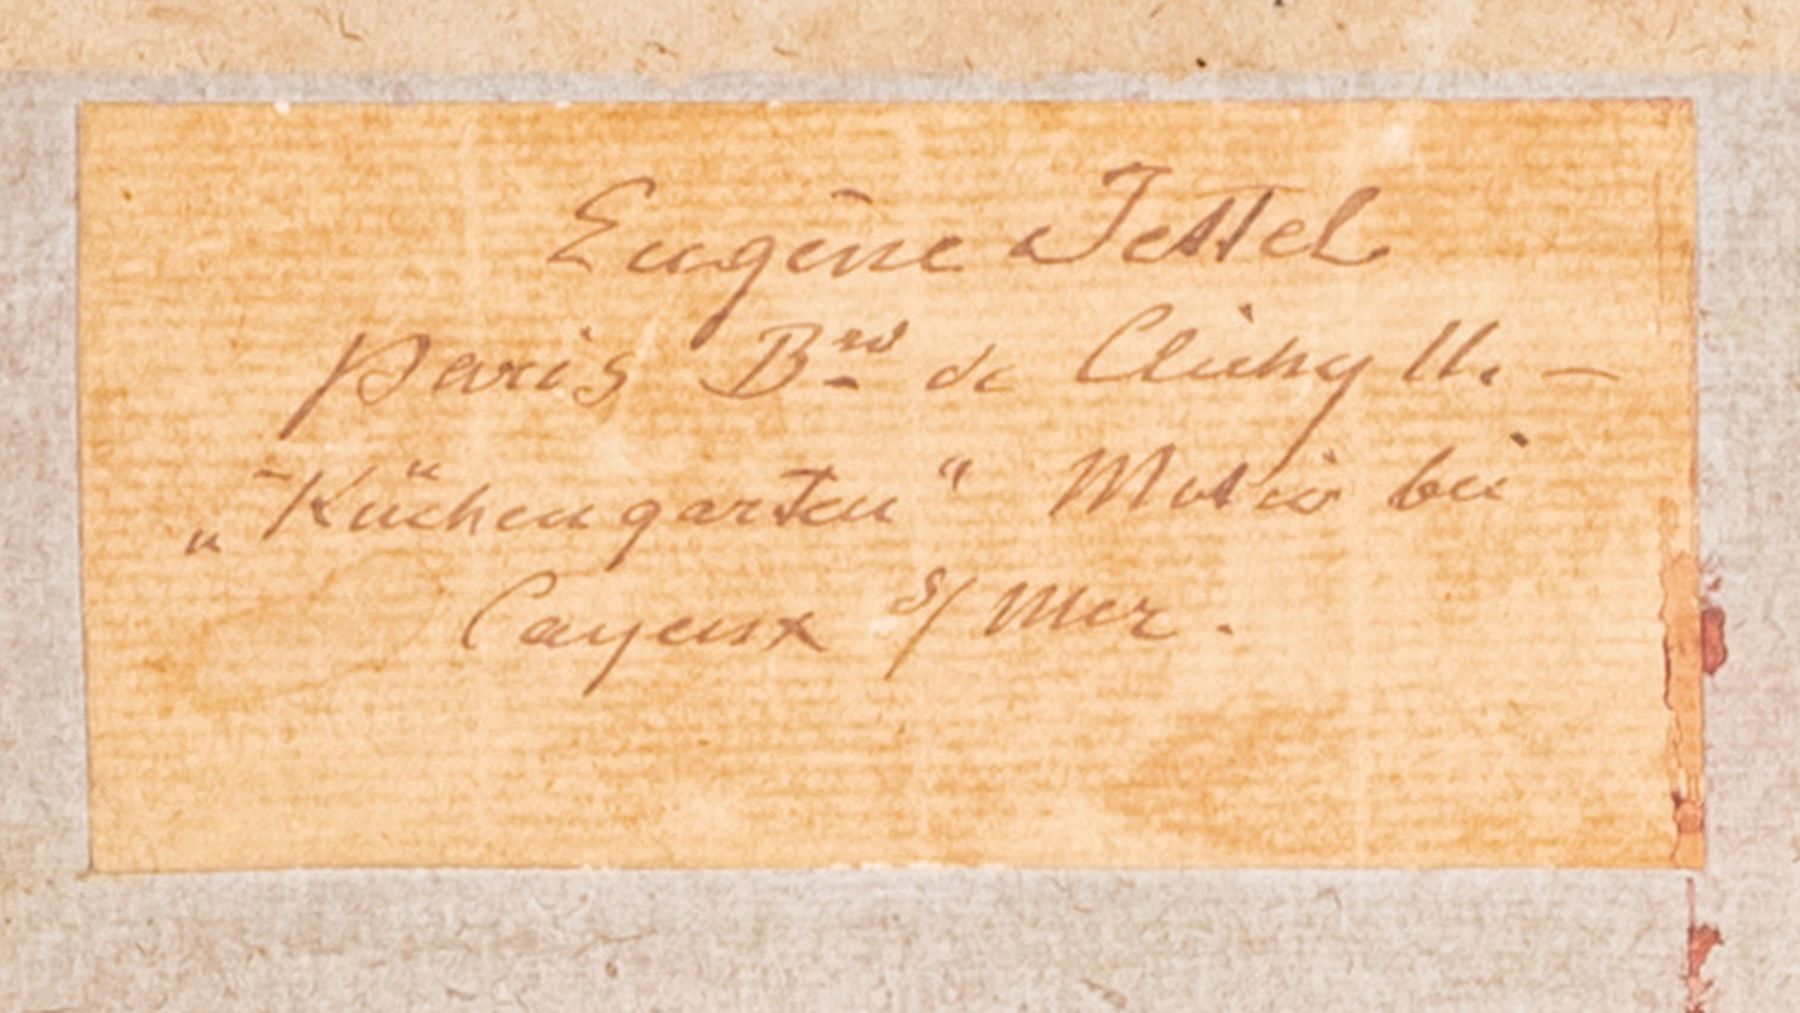 Eugène Jettel
Paris Bʳᵈ de Clichy 11. —
„Küchengarten“ Motiv bei
Cayeux s/Mer.